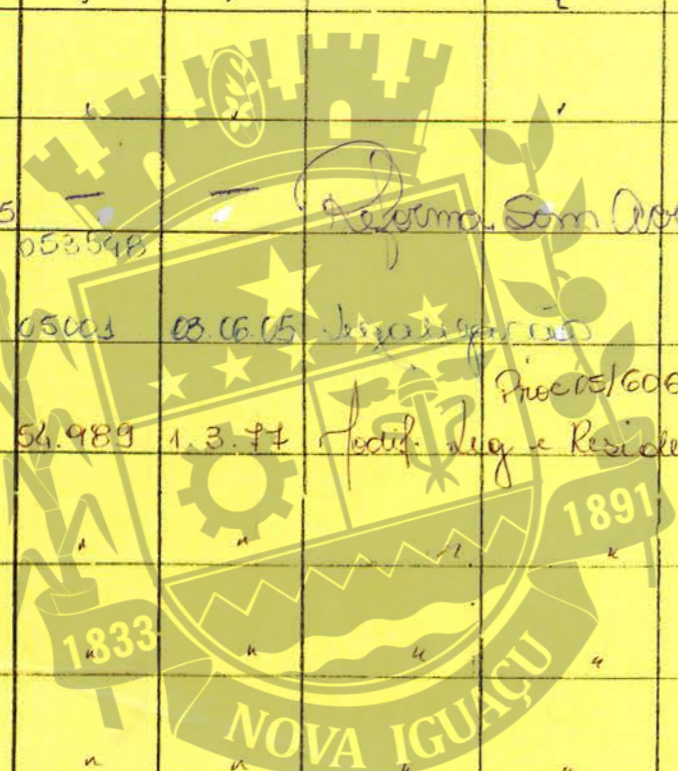 5 — — Reforma Sem
053548
05001 03.06.05 Legalização
Proc 05/606
54.989 1.3.77 Modif. Leg e Reside
" " " "
1891
1833
" " " "
NOVA IGUAÇU
" " " "